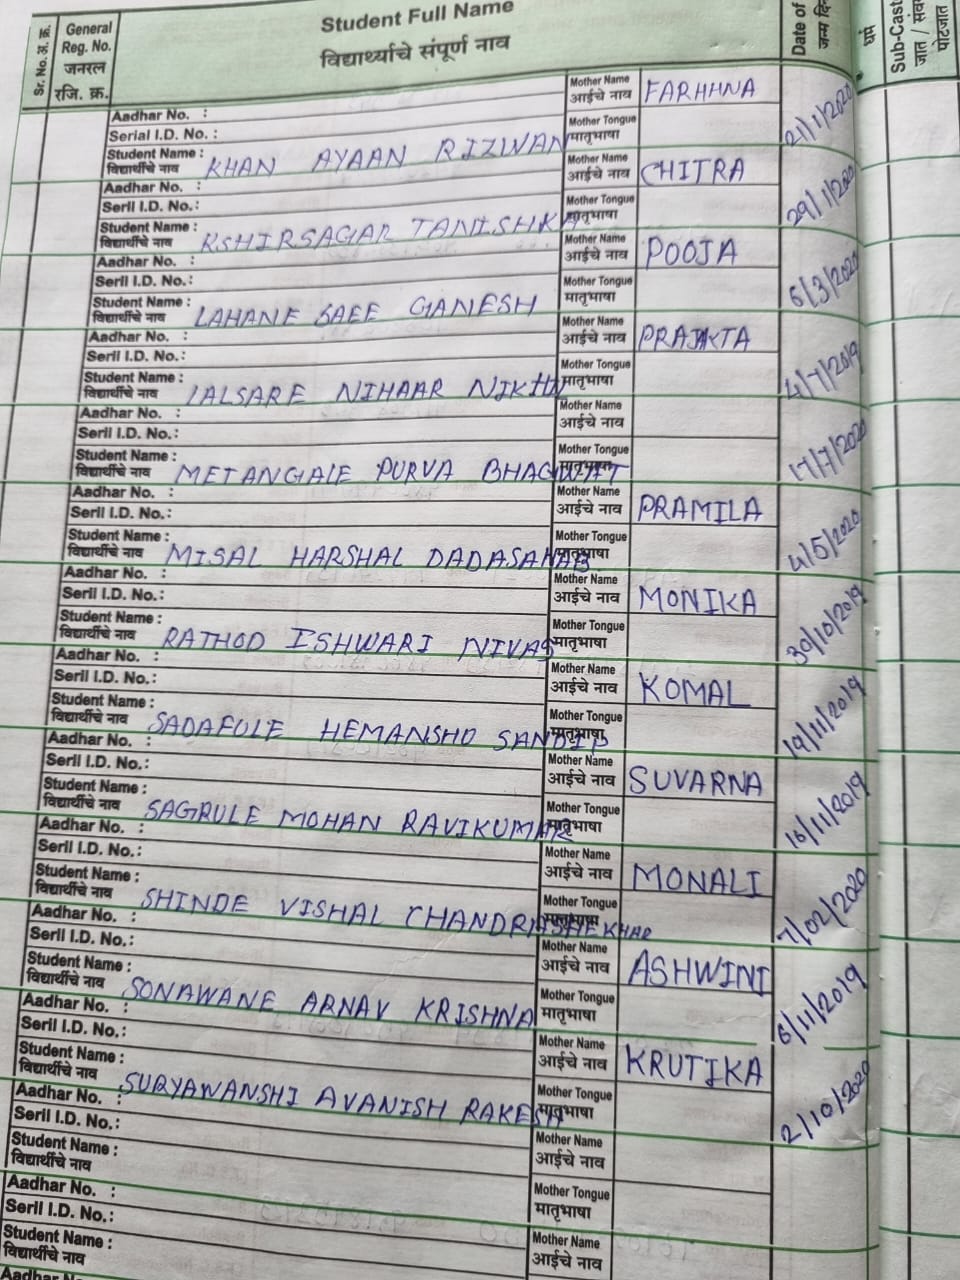 Sr. No. अ. क्र.
General Reg. No. जनरल रजि. क्र.
Student Full Name
विद्यार्थ्याचे संपूर्ण नाव
Date of
जन्म दि
धर्म
Sub-Cast
जात / संवर्ग
पोटजात
Mother Name
आईचे नाव FARHHNA
Aadhar No. :
Serial I.D. No. :
Mother Tongue
मातृभाषा
21/1/2020
Student Name :
विद्यार्थीचे नाव KHAN AYAAN RIZWAN
Mother Name
आईचे नाव CHITRA
Aadhar No. :
Seril I.D. No.:
Mother Tongue
मातृभाषा
29/1/2020
Student Name :
विद्यार्थीचे नाव KSHIRSAGAR TANISHKA
Mother Name
आईचे नाव POOJA
Aadhar No. :
Seril I.D. No.:
Mother Tongue
मातृभाषा
6/3/2020
Student Name :
विद्यार्थीचे नाव LAHANE SAEE GANESH
Mother Name
आईचे नाव PRAJAKTA
Aadhar No. :
Seril I.D. No.:
Mother Tongue
मातृभाषा
4/7/2019
Student Name :
विद्यार्थीचे नाव LALSARE NIHAAR NIKHIL
Mother Name
आईचे नाव
Aadhar No. :
Seril I.D. No.:
Mother Tongue
मातृभाषा
17/7/2020
Student Name :
विद्यार्थीचे नाव METANGALE PURVA BHAGWAT
Mother Name
आईचे नाव PRAMILA
Aadhar No. :
Seril I.D. No.:
Mother Tongue
मातृभाषा
4/5/2020
Student Name :
विद्यार्थीचे नाव MISAL HARSHAL DADASAHAB
Mother Name
आईचे नाव MONIKA
Aadhar No. :
Seril I.D. No.:
Mother Tongue
मातृभाषा
30/10/2019
Student Name :
विद्यार्थीचे नाव RATHOD ISHWARI NIVAS
Mother Name
आईचे नाव KOMAL
Aadhar No. :
Seril I.D. No.:
Mother Tongue
मातृभाषा
19/11/2019
Student Name :
विद्यार्थीचे नाव SADAFULE HEMANSHO SANDIP
Mother Name
आईचे नाव SUVARNA
Aadhar No. :
Seril I.D. No.:
Mother Tongue
मातृभाषा
16/11/2019
Student Name :
विद्यार्थीचे नाव SAGRULE MOHAN RAVIKUMAR
Mother Name
आईचे नाव MONALI
Aadhar No. :
Seril I.D. No.:
Mother Tongue
मातृभाषा
7/02/2020
Student Name :
विद्यार्थीचे नाव SHINDE VISHAL CHANDRASHEKHAR
Mother Name
आईचे नाव ASHWINI
Aadhar No. :
Seril I.D. No.:
Mother Tongue
मातृभाषा
6/11/2019
Student Name :
विद्यार्थीचे नाव SONAWANE ARNAV KRISHNA
Mother Name
आईचे नाव KRUTIKA
Aadhar No. :
Seril I.D. No.:
Mother Tongue
मातृभाषा
2/10/2020
Student Name :
विद्यार्थीचे नाव SURYAWANSHI AVANISH RAKESH
Mother Name
आईचे नाव
Aadhar No. :
Seril I.D. No.:
Mother Tongue
मातृभाषा
Student Name :
विद्यार्थीचे नाव
Mother Name
आईचे नाव
Aadhar No. :
Seril I.D. No.:
Student Name :
विद्यार्थीचे नाव
Aadhar No.